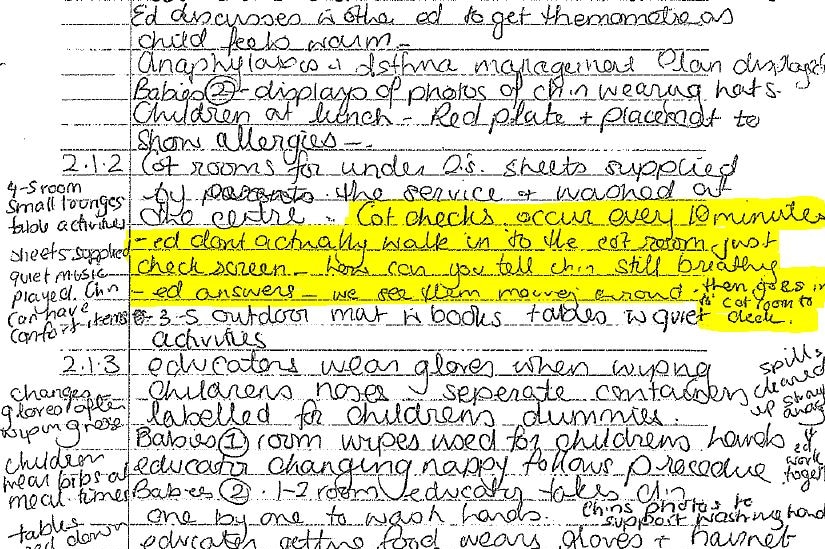 Ed discusses w other ed to get themamotre as
child feels warm -
Anaphylaxis + Asthma management Plan displayed
Babies ② - displays of photos of chn wearing hats.
Children at lunch - Red plate + placemat to
show allergies -
2.1.2 Cot rooms for under 2.s. sheets supplied
by parents the service + washed at
the centre - Cot checks occur every 10 minutes
- ed dont actually walk in to the cot room just
check screen - how can you tell chn still breathing
- ed answers - we see them moving around - then goes in
to cot room to
check.
3-5 outdoor mat w books tables w quiet
activities
4-5 room
small lounges
table activities
sheets supplied
quiet music
played. Chn
can have
comfort items
2.1.3 educators wear gloves when wiping
childrens noses - seperate containers
labelled for childrens dummies.
Babies ① room wipes used for childrens hands
educator changing nappy follows procedure
Babies ② . 1-2 room - educator takes chn
one by one to wash hands.
chns photos to
support washing hand
educator getting food wears gloves + hairnet
changes
gloves after
wiping nose
children
wear bibs at
meal times
tables
down
spills
cleaned
up
away
+
ed
work